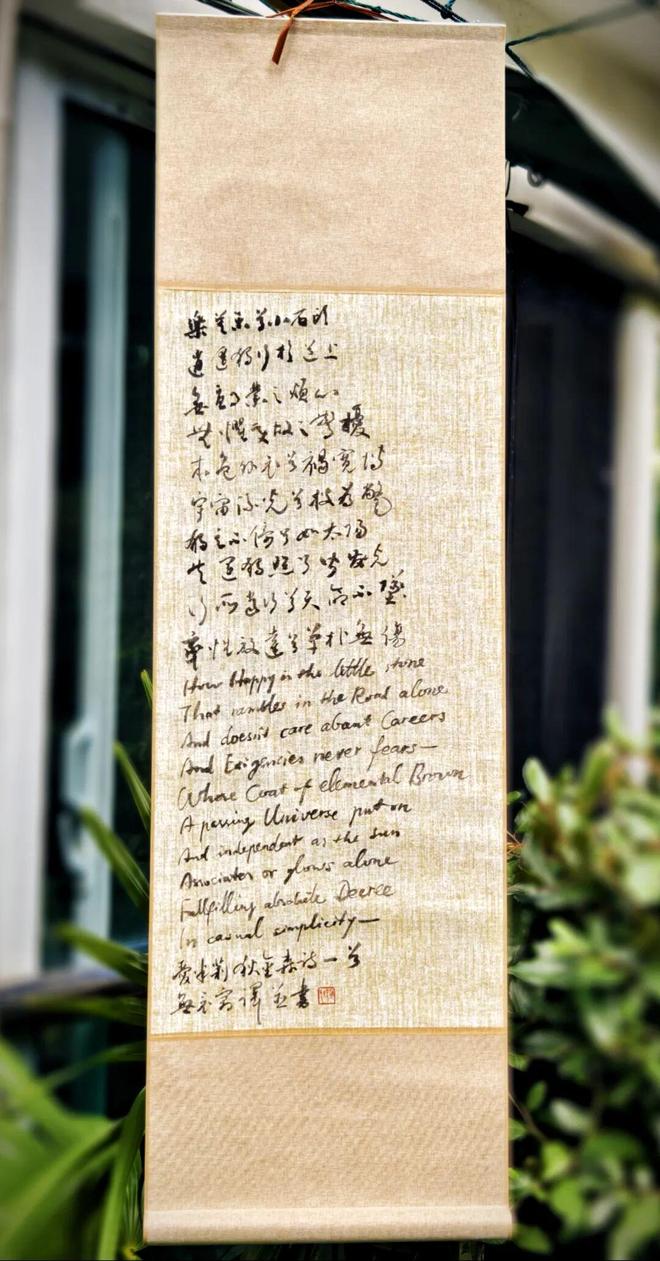 樂莫樂兮小石頭
逍遙獨行於道上
無 業之煩心
懼變故之 擾
本色外衣兮褐寬博
宇宙流光兮披為氅
獨立不倚兮如太陽
獨照兮皆發光
行所 行兮天命不墜
率性放達兮 朴無傷
How Happy is the little stone
That rambles in the Road alone
And doesn't care about Careers
And Exigencies never fears—
Whose Coat of elemental Brown
A passing Universe put on
And independent as the Sun
Associates or glows alone
Fulfilling absolute Decree
In casual simplicity—
愛米莉狄金森詩一首
無衣 譯並書